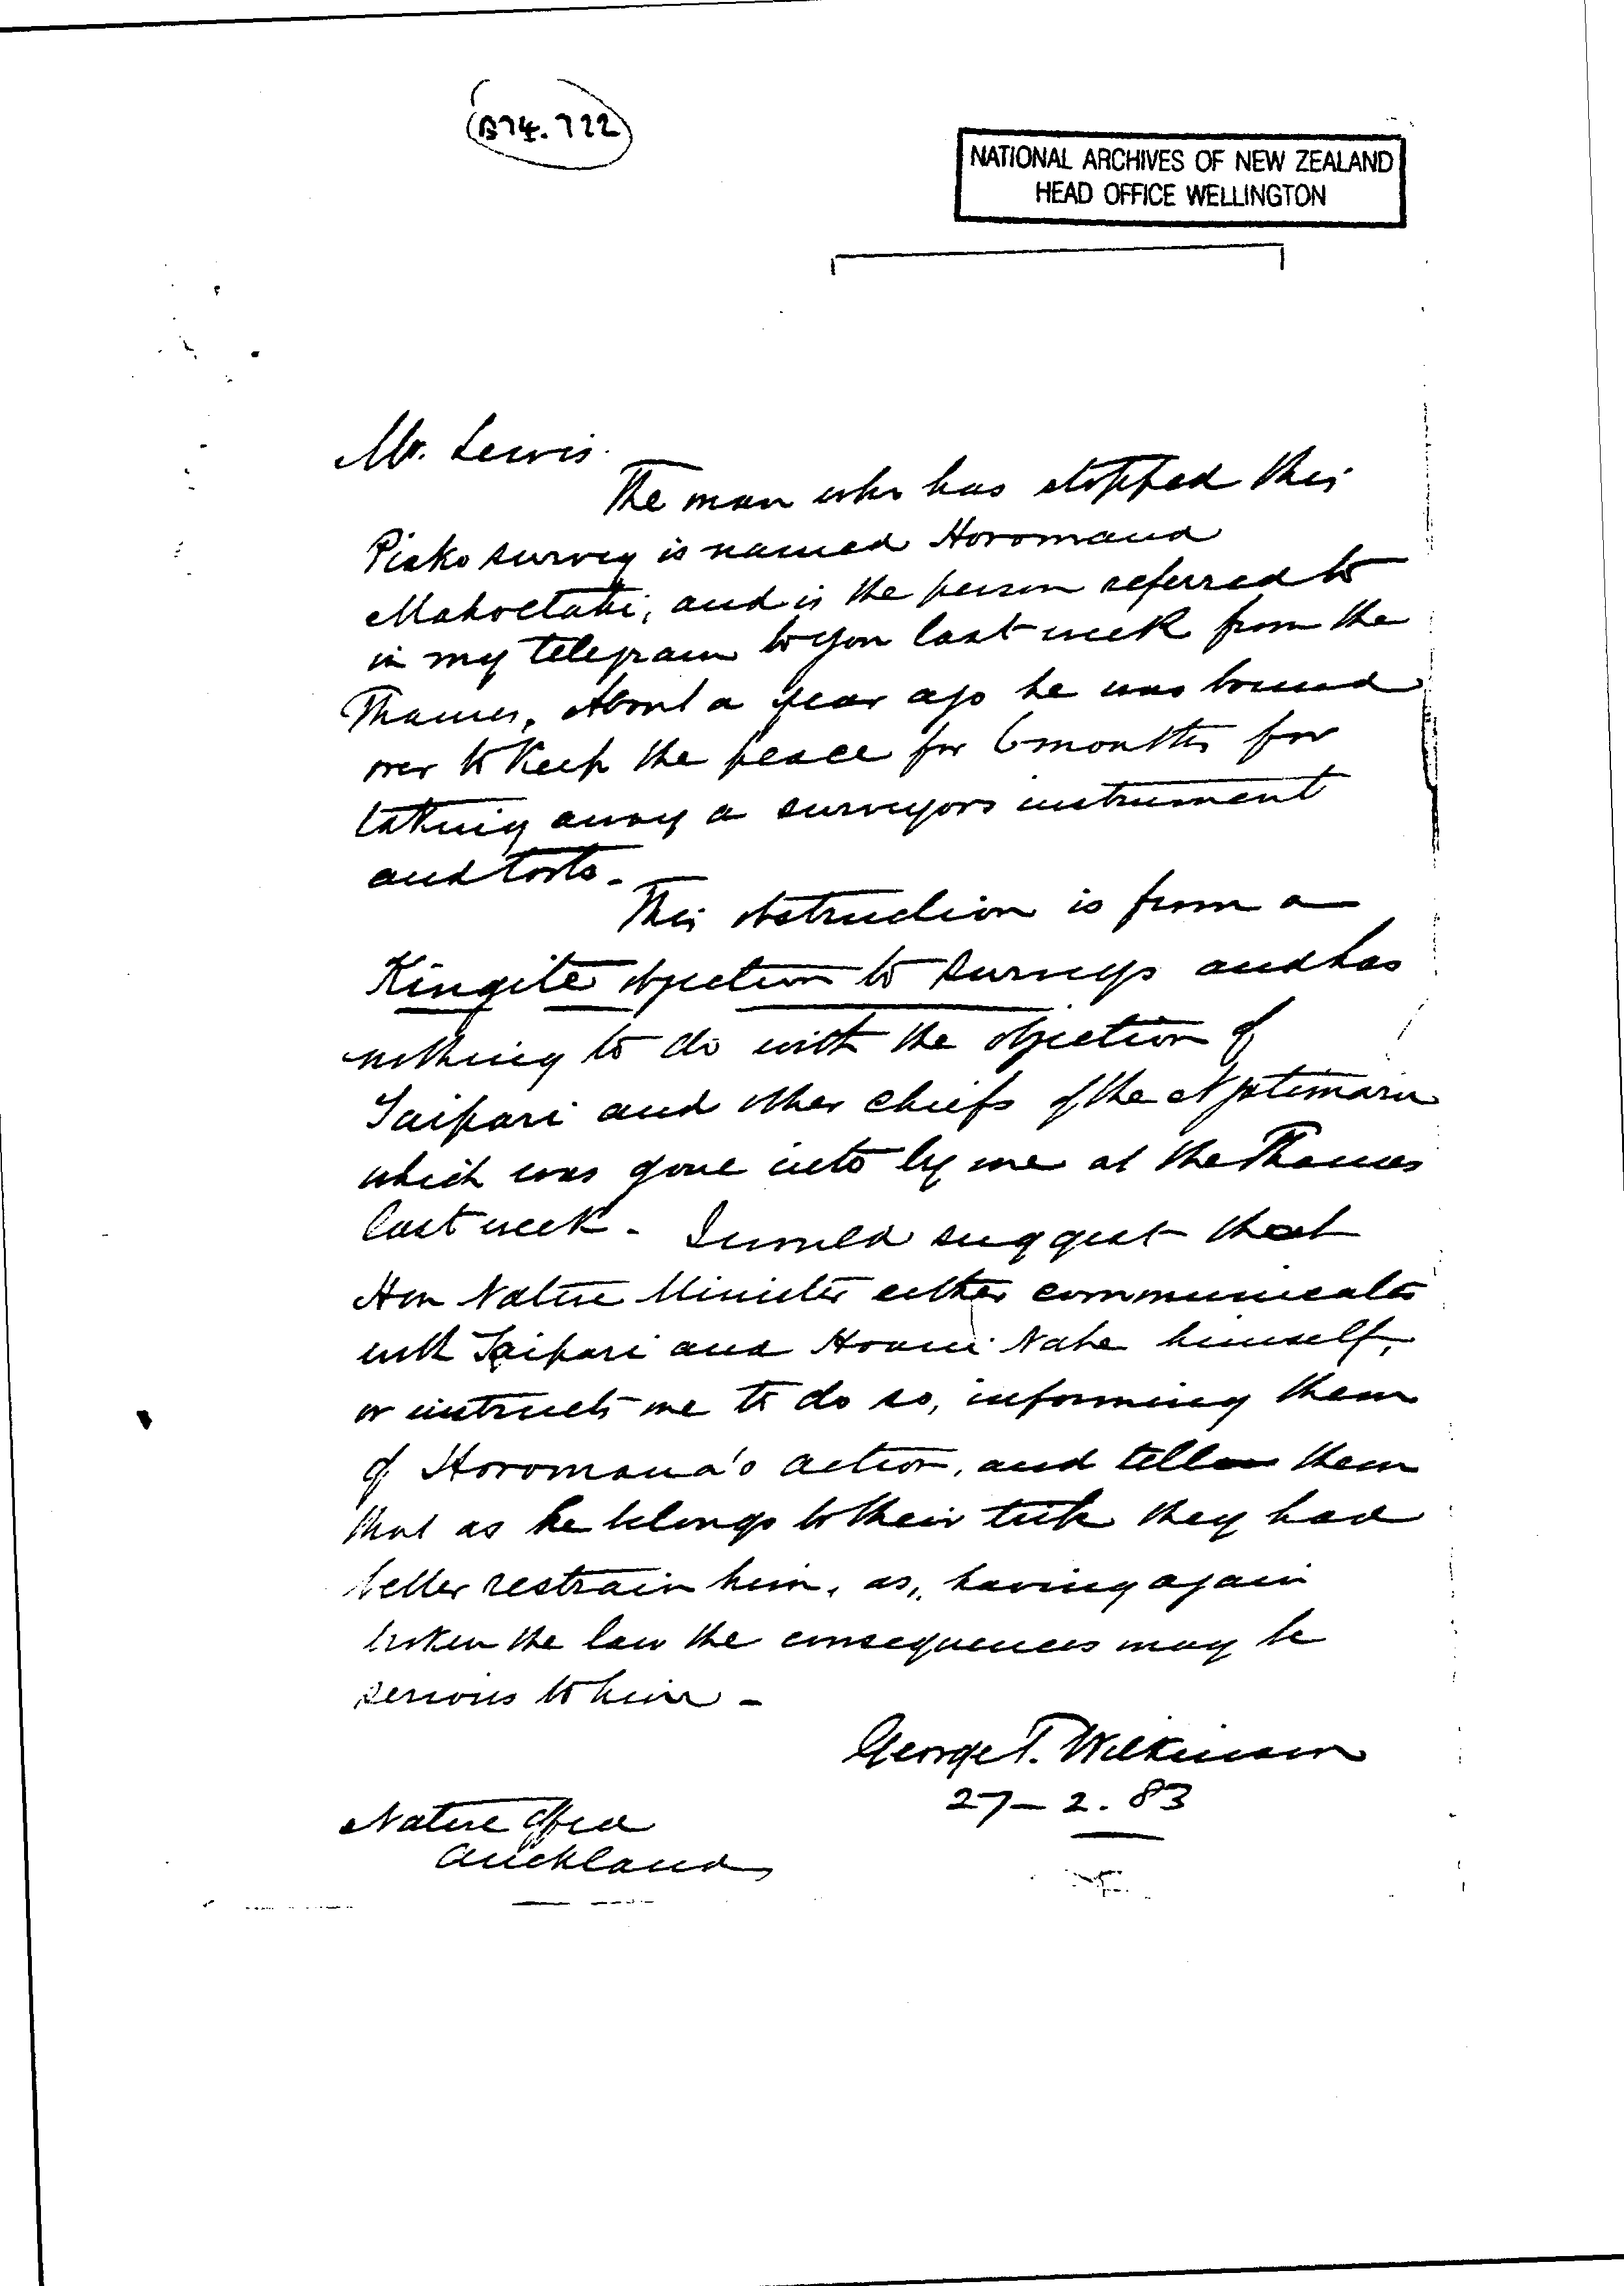 B74.722
NATIONAL ARCHIVES OF NEW ZEALAND
HEAD OFFICE WELLINGTON
Mr. Lewis.
The man who has stopped this
Piako survey is named Horomana
and is the person referred to
in my telegram to you last week from the
Thames. About a year ago he was bound
over to keep the peace for 6 months for
taking away a surveyors instrument
and tools.
This obstruction is from a
Kingite objection to surveys and has
nothing to do with the objection of
Taipari and other chiefs of the Ngatimaru
which was gone into by me at the Thames
last week - I would suggest that
Hon Native Minister either communicates
with Taipari and Hoani Nahe himself,
or instructs me to do so, informing them
of Horomana's action, and tell them
that as he belongs to their tribe they had
better restrain him, as, having again
broken the law the consequences may be
serious to him -
George T. Wilkinson
27-2.83
Native Office
Auckland